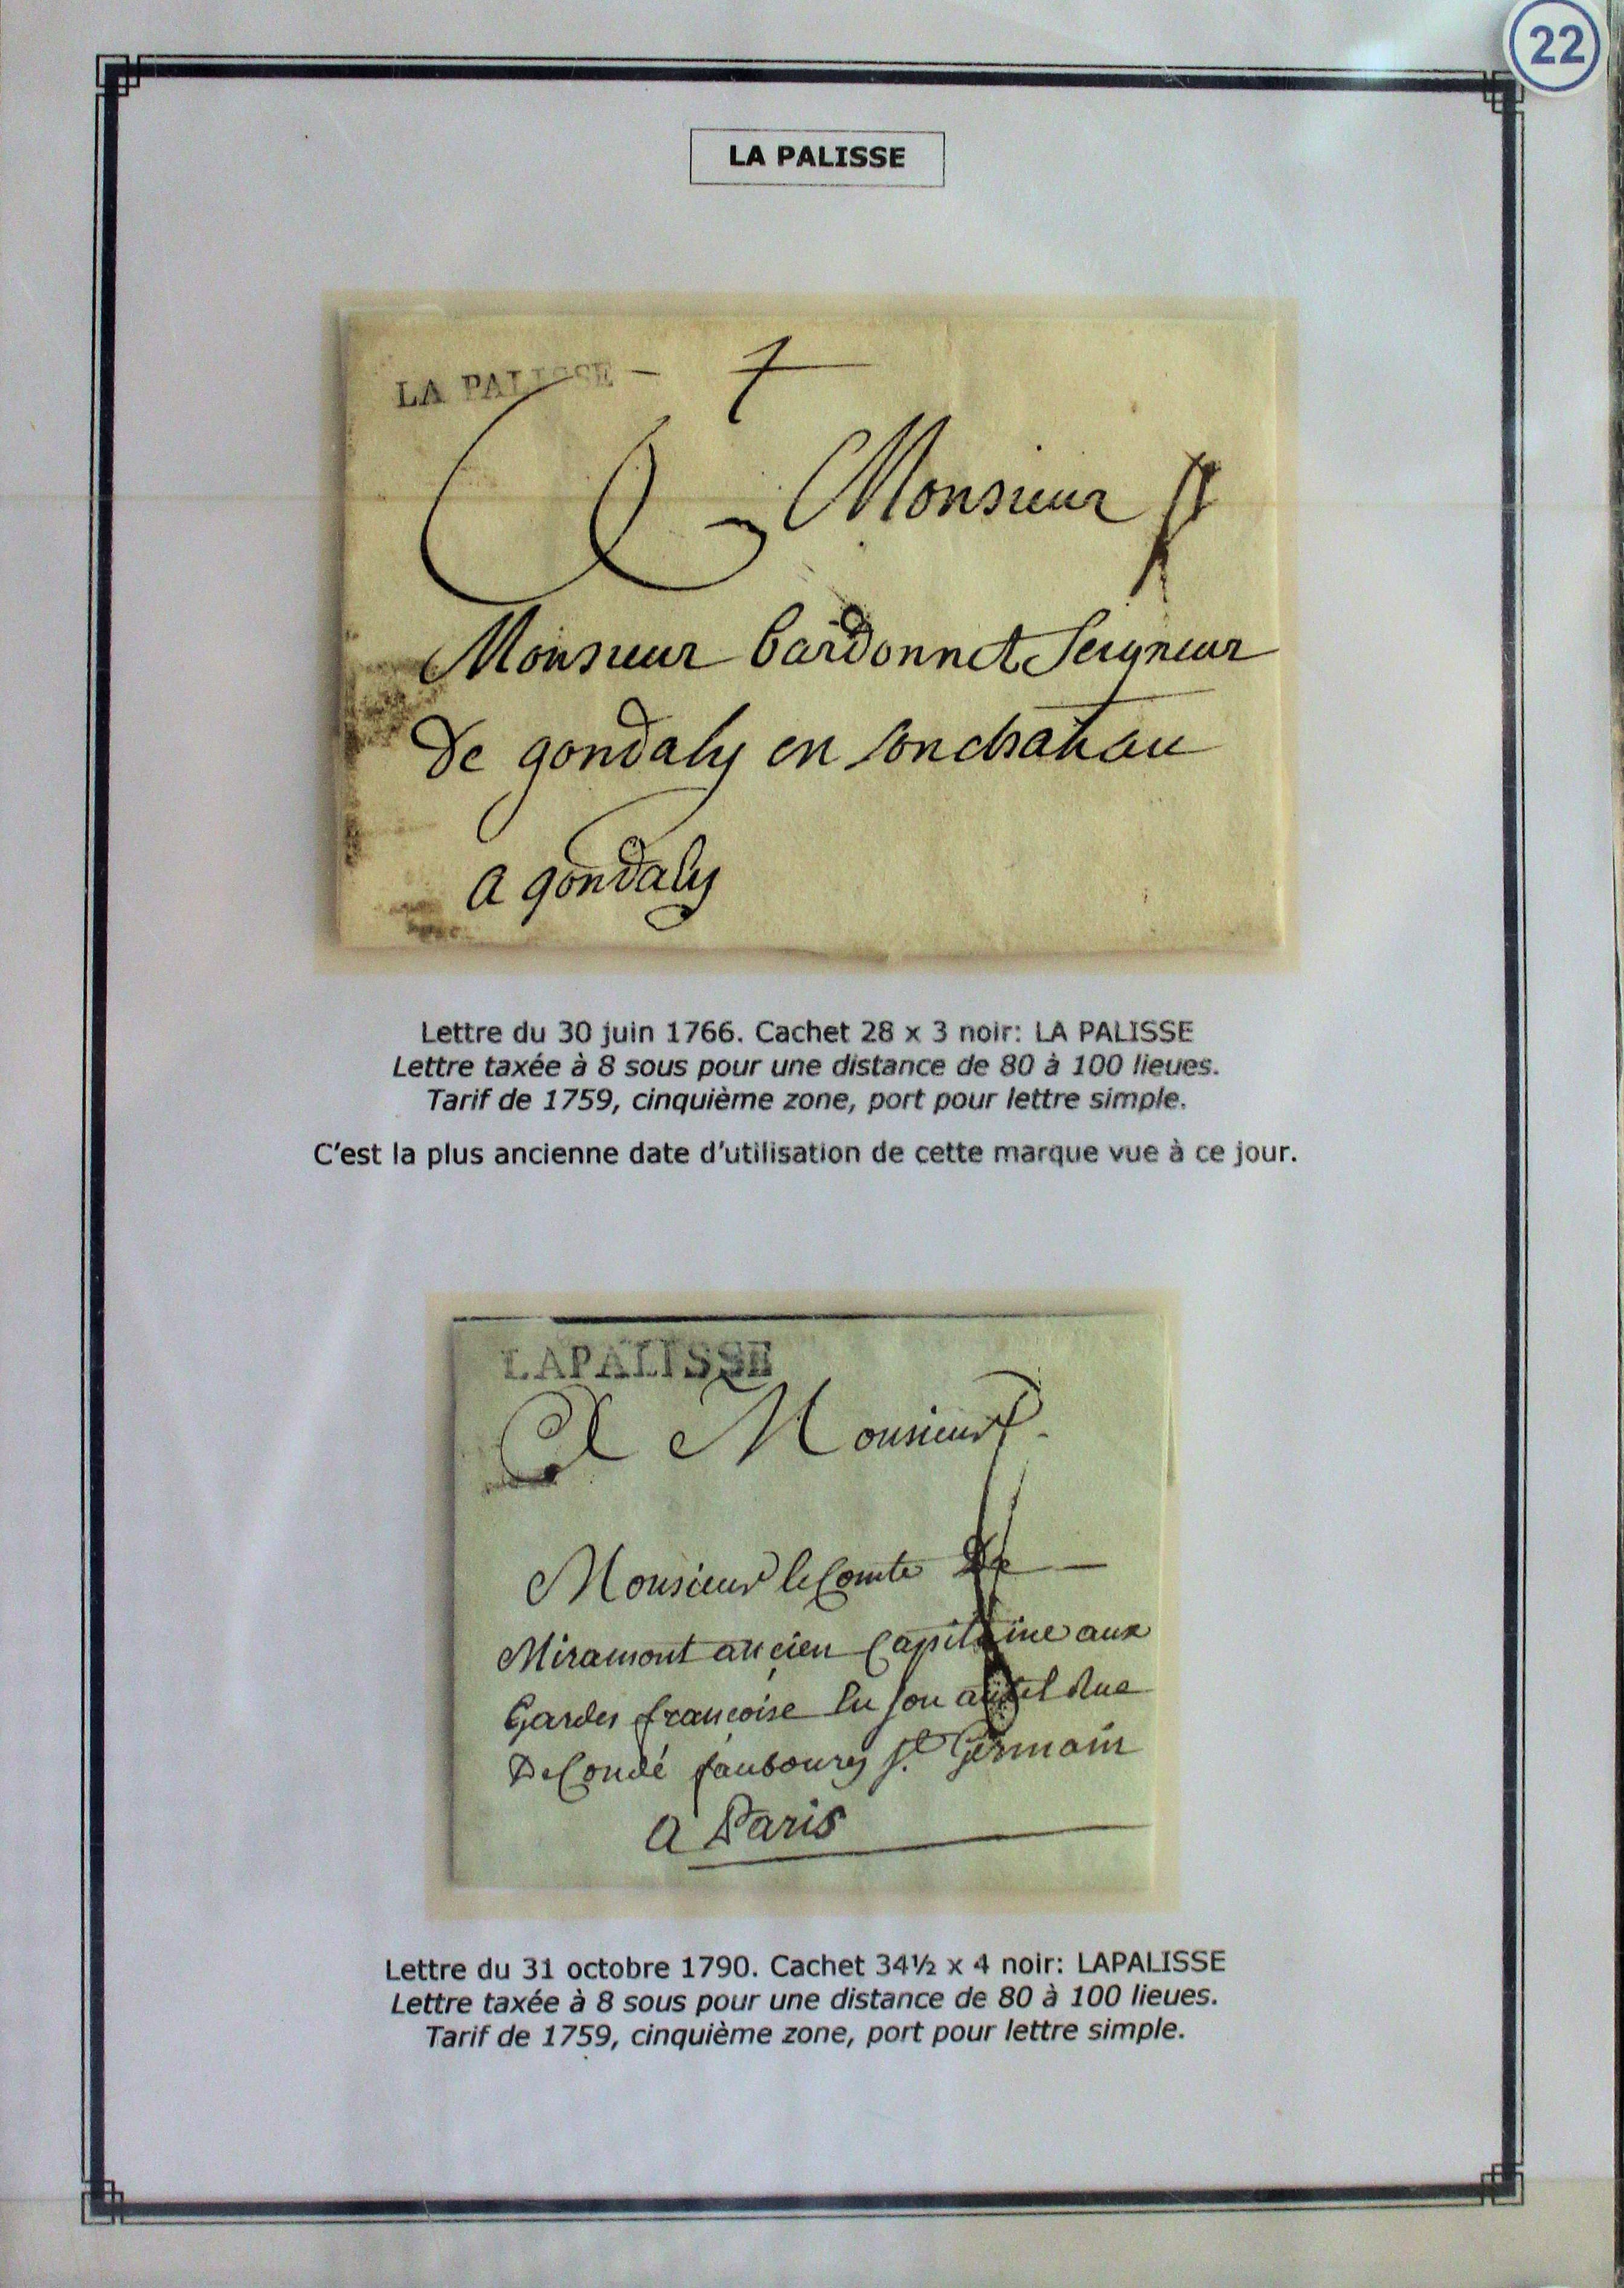 22
LA PALISSE
LA PALISSE
7
A Monsieur
Monsieur bardonnet Seigneur
De gondaly en son chateau
a gondaly
Lettre du 30 juin 1766. Cachet 28 x 3 noir: LA PALISSE
Lettre taxée à 8 sous pour une distance de 80 à 100 lieues.
Tarif de 1759, cinquième zone, port pour lettre simple.
C'est la plus ancienne date d'utilisation de cette marque vue à ce jour.
LAPALISSE
A Monsieur
Monsieur le Comte De
Miramont ancien Capitaine aux
Gardes françoise En son autel Rue
De Condé faubourg St. Germain
a Paris
Lettre du 31 octobre 1790. Cachet 34½ x 4 noir: LAPALISSE
Lettre taxée à 8 sous pour une distance de 80 à 100 lieues.
Tarif de 1759, cinquième zone, port pour lettre simple.